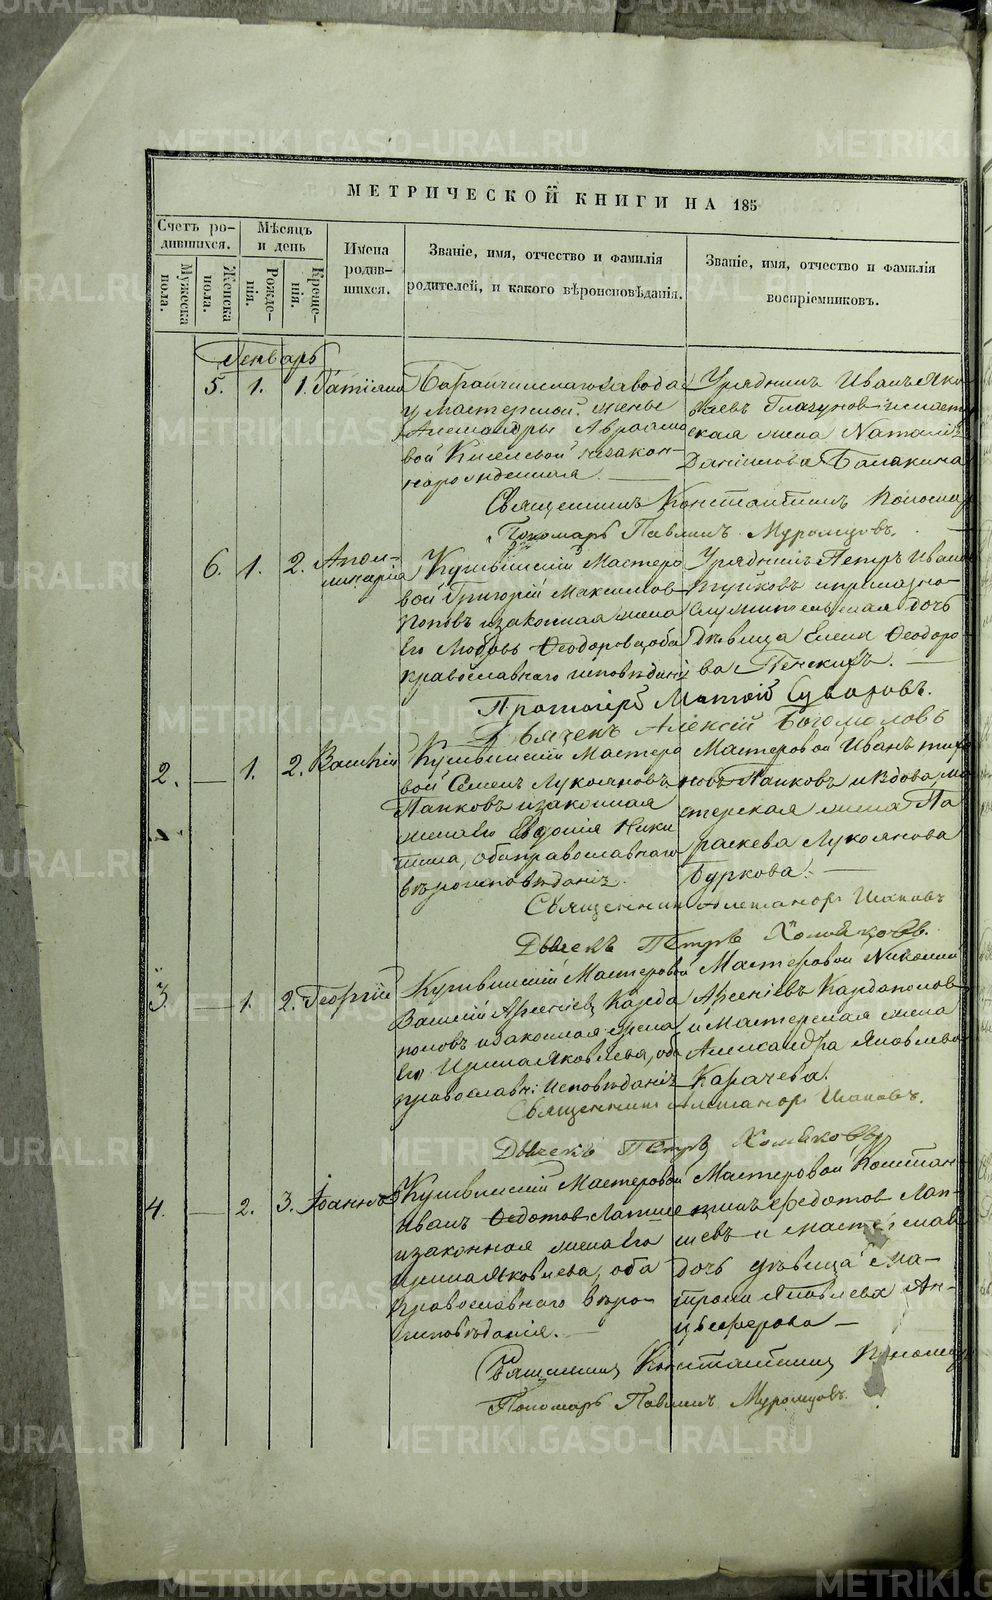 МЕТРИЧЕСКОЙ КНИГИ НА 185
Счетъ ро-
дившихся.
Мужеска
пола.
Женска
пола.
Мѣсяцъ
и день
Рожде-
нія.
Креще-
нія.
Имена
родив-
шихся.
Званіе, имя, отчество и фамилія
родителей, и какого вѣроисповѣданія.
Званіе, имя, отчество и фамилія
воспріемниковъ.
Генварь
5. 1. 1. Татіана
Баранчинскаго завода
у мастерской женки
Александры
вой Киселевой незакон-
норожденная.
Урядникъ Иванъ Яко
влевъ Глазуновъ и мастер
ская жена Наталія
Даніилова Балакина
Священникъ Константинъ
Пономарь Павлинъ Муромцовъ.
6. 1. 2. Апол-
линарія
Кушвинскій Мастеро
вой Григорій Максимовъ
Поповъ и законная жена
его Любовь Ѳеодорова, оба
православнаго исповѣданія
Урядникъ Петръ Иванов
дочь
Дѣвица Елена Ѳеодоро
ва Пенскихъ.
Протоіерей Матѳій Суворовъ.
Дьячекъ Алексій Богомоловъ
2. — 1. 2. Василій
Кушвинскій Мастеро
вой Семенъ Лукояновъ
Папковъ и законная
жена его Евдокія Ники
тина, оба православнаго
вѣроисповѣданія.
Мастеровой Иванъ Тихо
новъ Папковъ и вдова, ма
стерская жена Па
раскева Лукоянова
Буркова. —
Священникъ Александръ
Дьячекъ Петръ Холмяковъ.
3. — 1. 2. Георгій
Кушвинскій Мастеровой
Василій Арсеніевъ Кардо
половъ и законная жена
его Ирина Яковлева, оба
православн: исповѣданія
Мастеровой Николай
Арсеніевъ Кардополов
и Мастерская жена
Александра Яковлева
Карачева.
Священникъ Александръ
Дьячекъ Петръ Холмяковъ
4. — 2. 3. Іоаннъ
Кушвинскій Мастеровой
Иванъ Ѳедотовъ Лапшевъ
и законная жена его
Ирина Яковлева, оба
православнаго вѣро-
исповѣданія. —
Мастеровой Констан-
тинъ Ѳедотовъ Лап-
шевъ и мастерская
дочь дѣвица Ма-
трона Яковлева Ан-
цыферова —
Священникъ Константинъ
Пономарь Павлинъ Муромцовъ.
METRIKI.GASO-URAL.RU